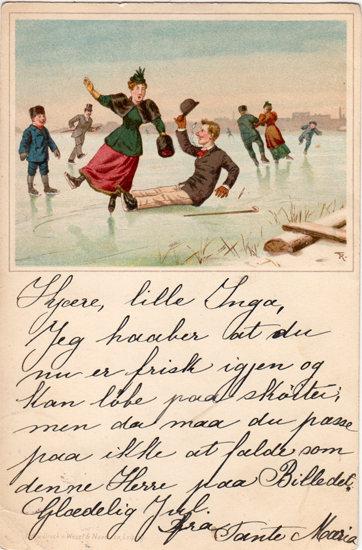 Kjære, lille Inga,
Jeg haaber at du
nu er frisk igjen og
kan løbe paa skøiter;
men da maa du passe
paa ikke at falde som
denne Herre paa Billedet.
Glædelig Jul.
fra Tante Marie